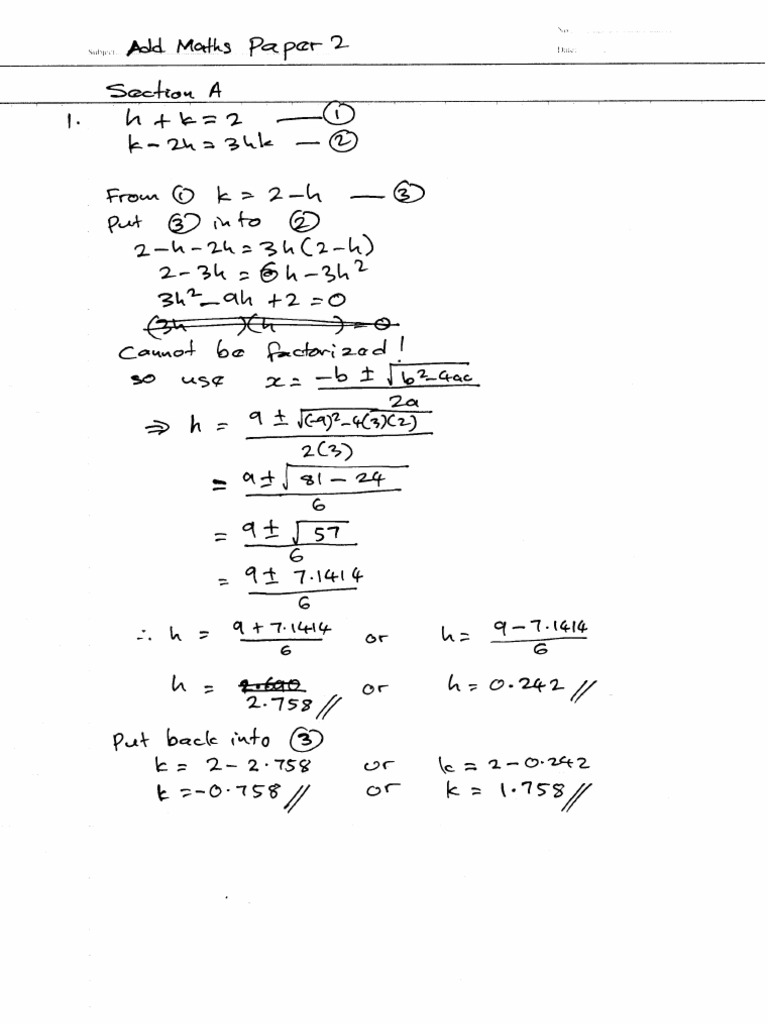 Subject: Add Maths Paper 2
No:
Date:
Section A
1. h + k = 2 —— ①
k - 2h = 3hk — ②
From ① k = 2-h — ③
Put ③ into ②
2-h-2h = 3h(2-h)
2-3h = 6h-3h²
3h² - 9h + 2 = 0
(3h )(h ) = 0
Cannot be factorized!
so use x = -b ± √b²-4ac / 2a
⇒ h = 9 ± √(-9)²-4(3)(2) / 2(3)
= 9 ± √81-24 / 6
= 9 ± √57 / 6
= 9 ± 7.1414 / 6
∴ h = 9+7.1414 / 6 or h = 9-7.1414 / 6
h = 2.690 2.758// or h = 0.242//
Put back into ③
k = 2-2.758 or k = 2-0.242
k = -0.758// or k = 1.758//